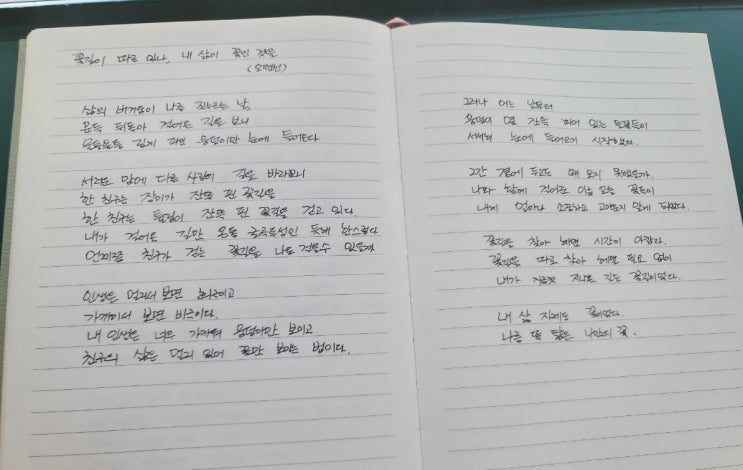 꽃길이 따로 있나, 내 삶이 꽃인 것을
(오평선)
삶의 버거움이 나를 짓누르는 날,
문득 뒤돌아 걸어온 길을 보니
울퉁불퉁 길게 패인 웅덩이만 눈에 들어온다
서러운 맘에 다른 사람의 길을 바라보니
한 친구는 장미가 잔뜩 핀 꽃길을
한 친구는 들꽃이 잔뜩 핀 꽃길을 걷고 있다.
내가 걸어온 길만 온통 굴곡투성인 듯해 한스럽다
언제쯤 친구가 걷는 꽃길을 나도 걸을수 있을까
인생은 멀리서 보면 희극이고
가까이서 보면 비극이다.
내 인생은 너무 가까워 웅덩이만 보이고
친구의 삶은 멀리 있어 꽃만 보이는 법이다.
그러나 어느 날부터
웅덩이 옆 잔뜩 피어 있는 들꽃들이
서서히 눈에 들어오기 시작했다.
그간 곁에 두고도 왜 보지 못했을까.
나와 함께 걸어온 이름 모를 꽃들이
내게 얼마나 소중하고 고마운지 알게 되었다.
꽃길을 찾아 헤맨 시간이 아깝다.
꽃길을 따로 찾아 헤맬 필요 없이
내가 지금껏 지나온 길도 꽃길이었다.
내 삶 자체도 꽃이었다.
나를 똑 닮은 나만의 꽃.